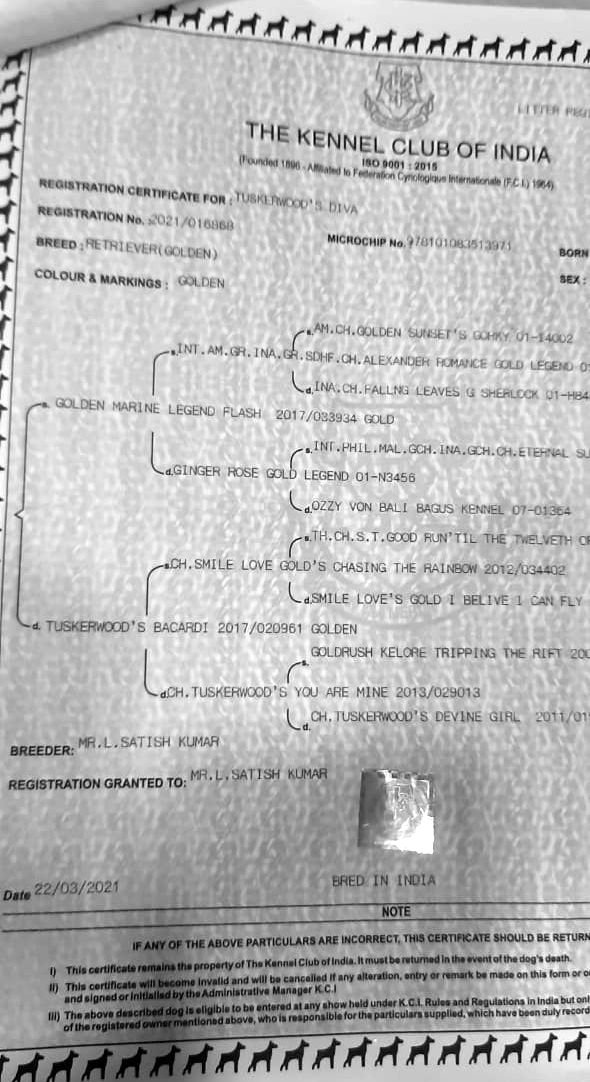 LITTER REG
THE KENNEL CLUB OF INDIA
ISO 9001 : 2015
(Founded 1896 - Affiliated to Federation Cynologique Internationale (F.C.I.) 1964)
REGISTRATION CERTIFICATE FOR : TUSKERWOOD'S DIVA
REGISTRATION No. : 2021/016868
MICROCHIP No. 978101083513971
BORN
BREED : RETRIEVER(GOLDEN)
SEX :
COLOUR & MARKINGS : GOLDEN
s. AM.CH.GOLDEN SUNSET'S GORKY 01-14002
s. INT.AM.GR.INA.GR.SDHF.CH.ALEXANDER ROMANCE GOLD LEGEND
d. INA.CH.FALLNG LEAVES G SHERLOCK 01-H84
s. GOLDEN MARINE LEGEND FLASH 2017/033934 GOLD
s. INT.PHIL.MAL.GCH.INA.GCH.CH.ETERNAL SU
d. GINGER ROSE GOLD LEGEND 01-N3456
d. OZZY VON BALI BAGUS KENNEL 07-01364
s. TH.CH.S.T.GOOD RUN'TIL THE TWELVETH
s. CH.SMILE LOVE GOLD'S CHASING THE RAINBOW 2012/034402
d. SMILE LOVE'S GOLD I BELIVE I CAN FLY
d. TUSKERWOOD'S BACARDI 2017/020961 GOLDEN
s. GOLDRUSH KELORE TRIPPING THE RIFT 200
d. CH.TUSKERWOOD'S YOU ARE MINE 2013/029013
d. CH.TUSKERWOOD'S DEVINE GIRL 2011/01
BREEDER: MR.L.SATISH KUMAR
REGISTRATION GRANTED TO: MR.L.SATISH KUMAR
BRED IN INDIA
Date 22/03/2021
NOTE
IF ANY OF THE ABOVE PARTICULARS ARE INCORRECT, THIS CERTIFICATE SHOULD BE RETURN
I) This certificate remains the property of The Kennel Club of India. It must be returned in the event of the dog's death.
II) This certificate will become invalid and will be cancelled if any alteration, entry or remark be made on this form or
and signed or initialled by the Administrative Manager K.C.I
III) The above described dog is eligible to be entered at any show held under K.C.I. Rules and Regulations in India but onl
of the registered owner mentioned above, who is responsible for the particulars supplied, which have been duly record